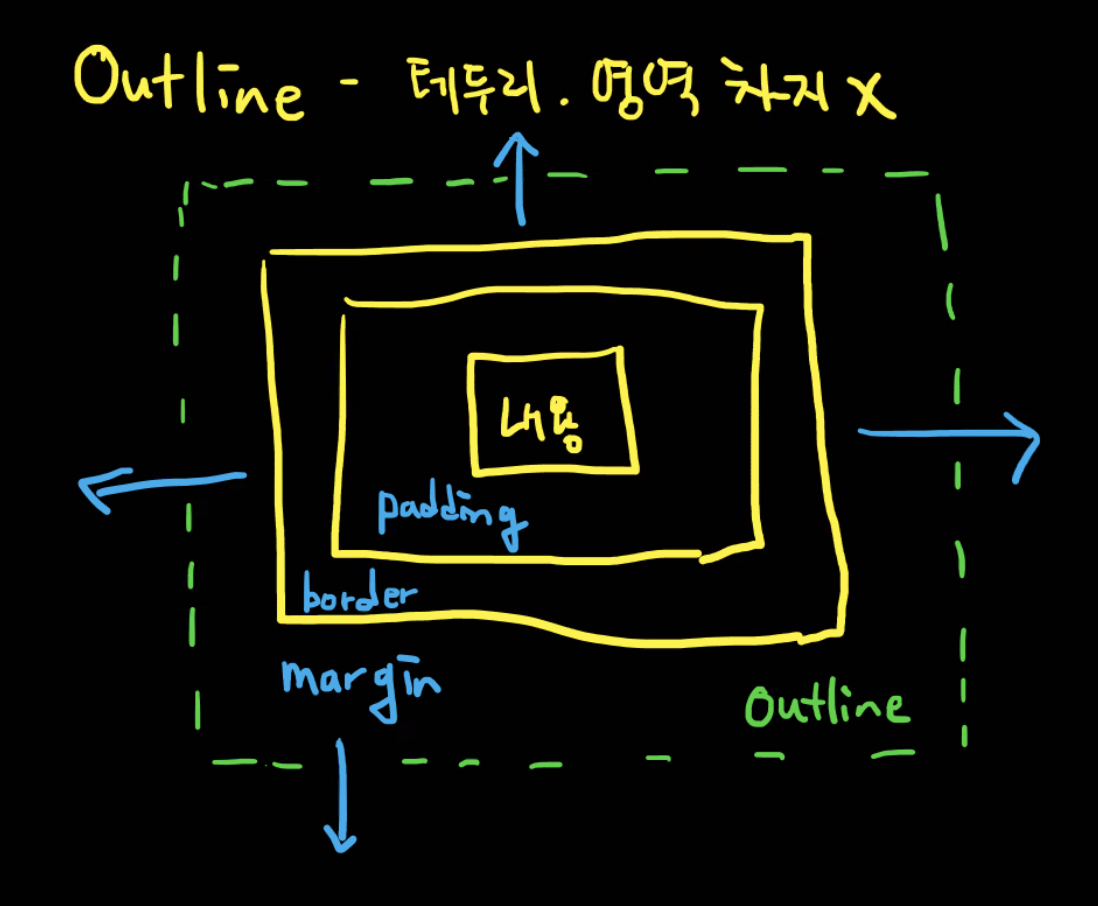 Outline - 테두리. 영역 차지 X
내용
padding
border
margin
Outline